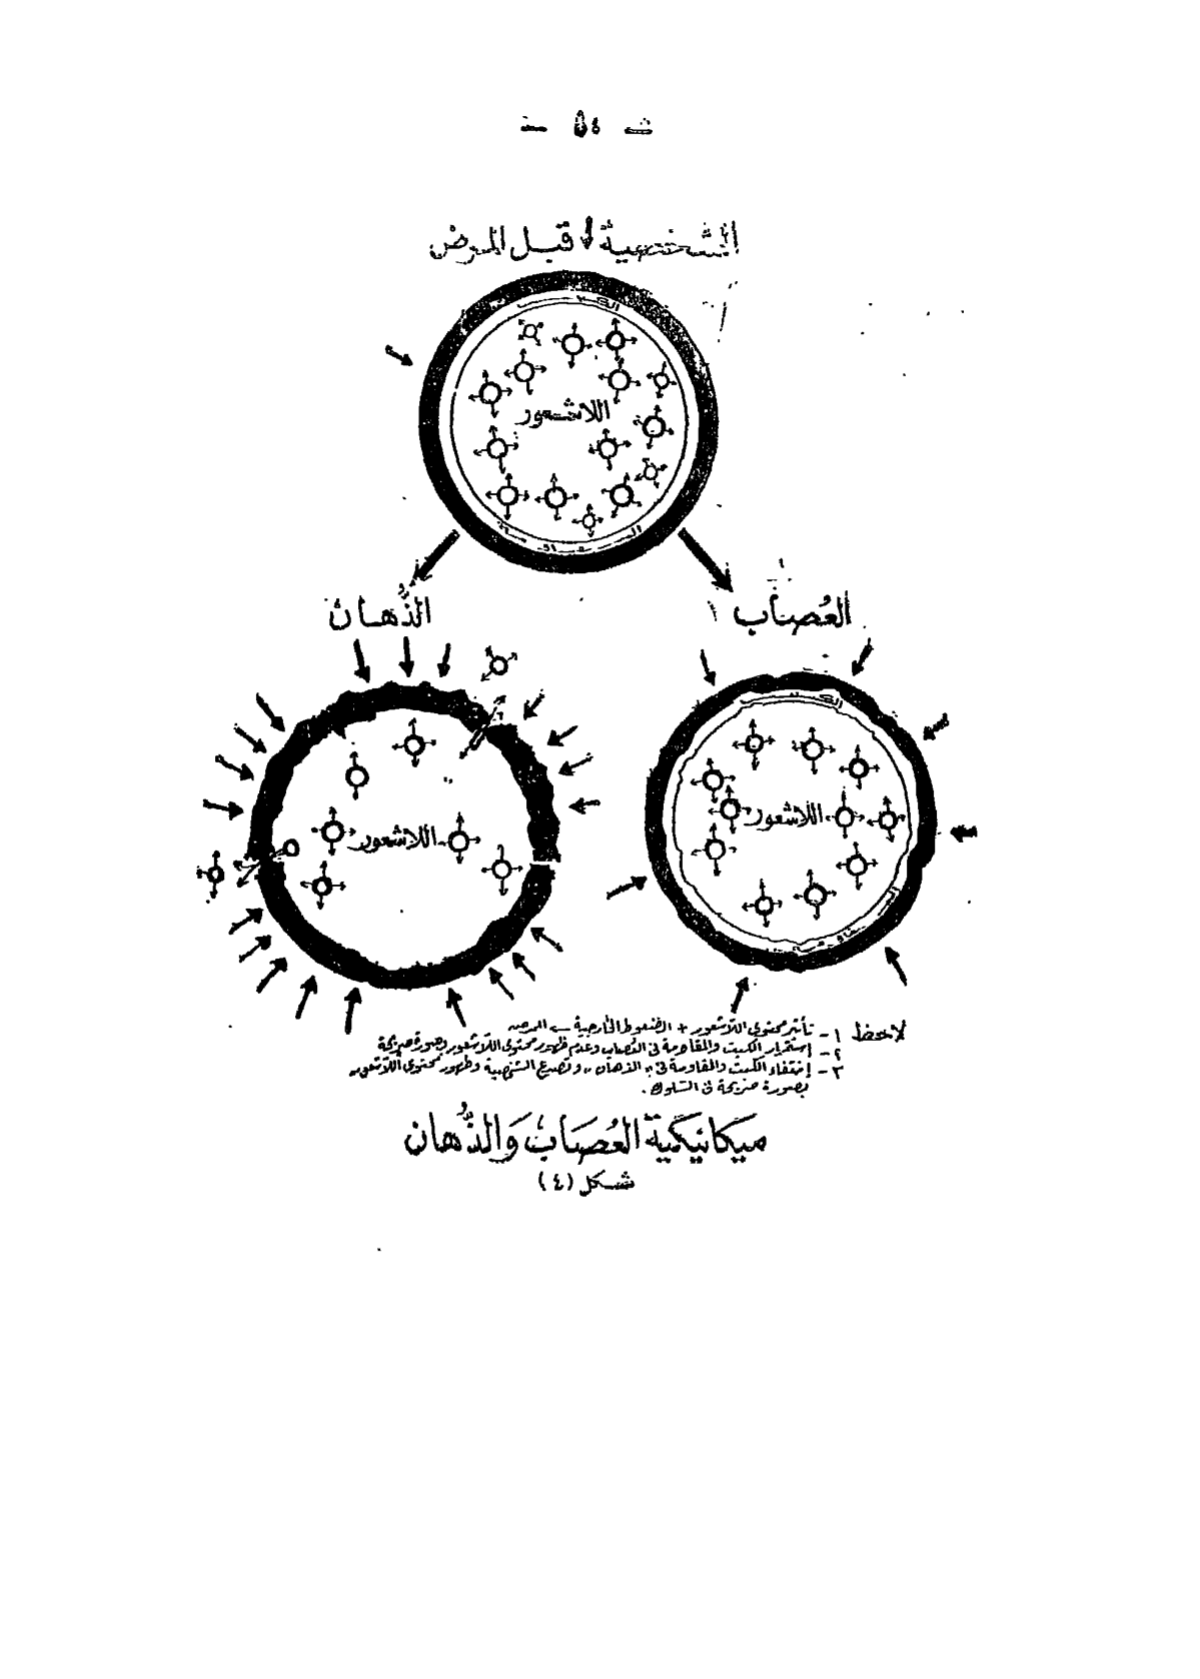 — ٥٤ —
الشخصية قبل المرض
الكبت
اللاشعور
المقاومة
العُصاب
الذُّهان
الكبت
اللاشعور
المقاومة
اللاشعور
لاحظ ١ - تأثير محتوى اللاشعور + الضغوط الخارجية ← المرض
٢ - إستمرار الكبت والمقاومة فى العُصاب وعدم ظهور محتوى اللاشعور بصورة صريحة
٣ - إختفاء الكبت والمقاومة فى الذهان وتصدع الشخصية وظهور محتوى اللاشعور
بصورة صريحة فى السلوك .
ميكانيكية العُصَاب وَالذُّهان
شكل (٤)